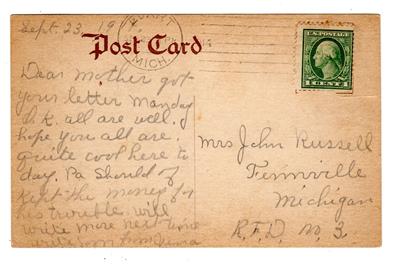 Sept. 23, 19
HART
MICH.
Post Card
U.S. POSTAGE
1 CENT 1
Dear Mother got
your letter Monday
O.K. all are well,
hope you all are.
quite cool here to
day, Pa Should of
kept the money for
his trouble will
write more next time
write soon from
Mrs John Russell
Fennville
Michigan
R.F.D. no. 3